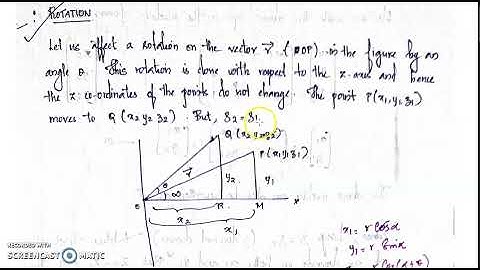 ROTATION
Let us affect a rotation on the vector r⃗ (OP) in the figure by an
angle θ. This rotation is done with respect to the z-axis and hence
the z co-ordinates of the points do not change. The point P(x1, y1, z1)
moves to Q (x2 y2 z2) But, z2 = z1.
Q (x2 y2 z2)
P(x1 y1 z1)
r⃗
θ
y2
y1
α
O
R
M
x
x2
x1
x1 = r cosα
y1 = r sinα
RECORDED WITH
SCREENCAST MATIC